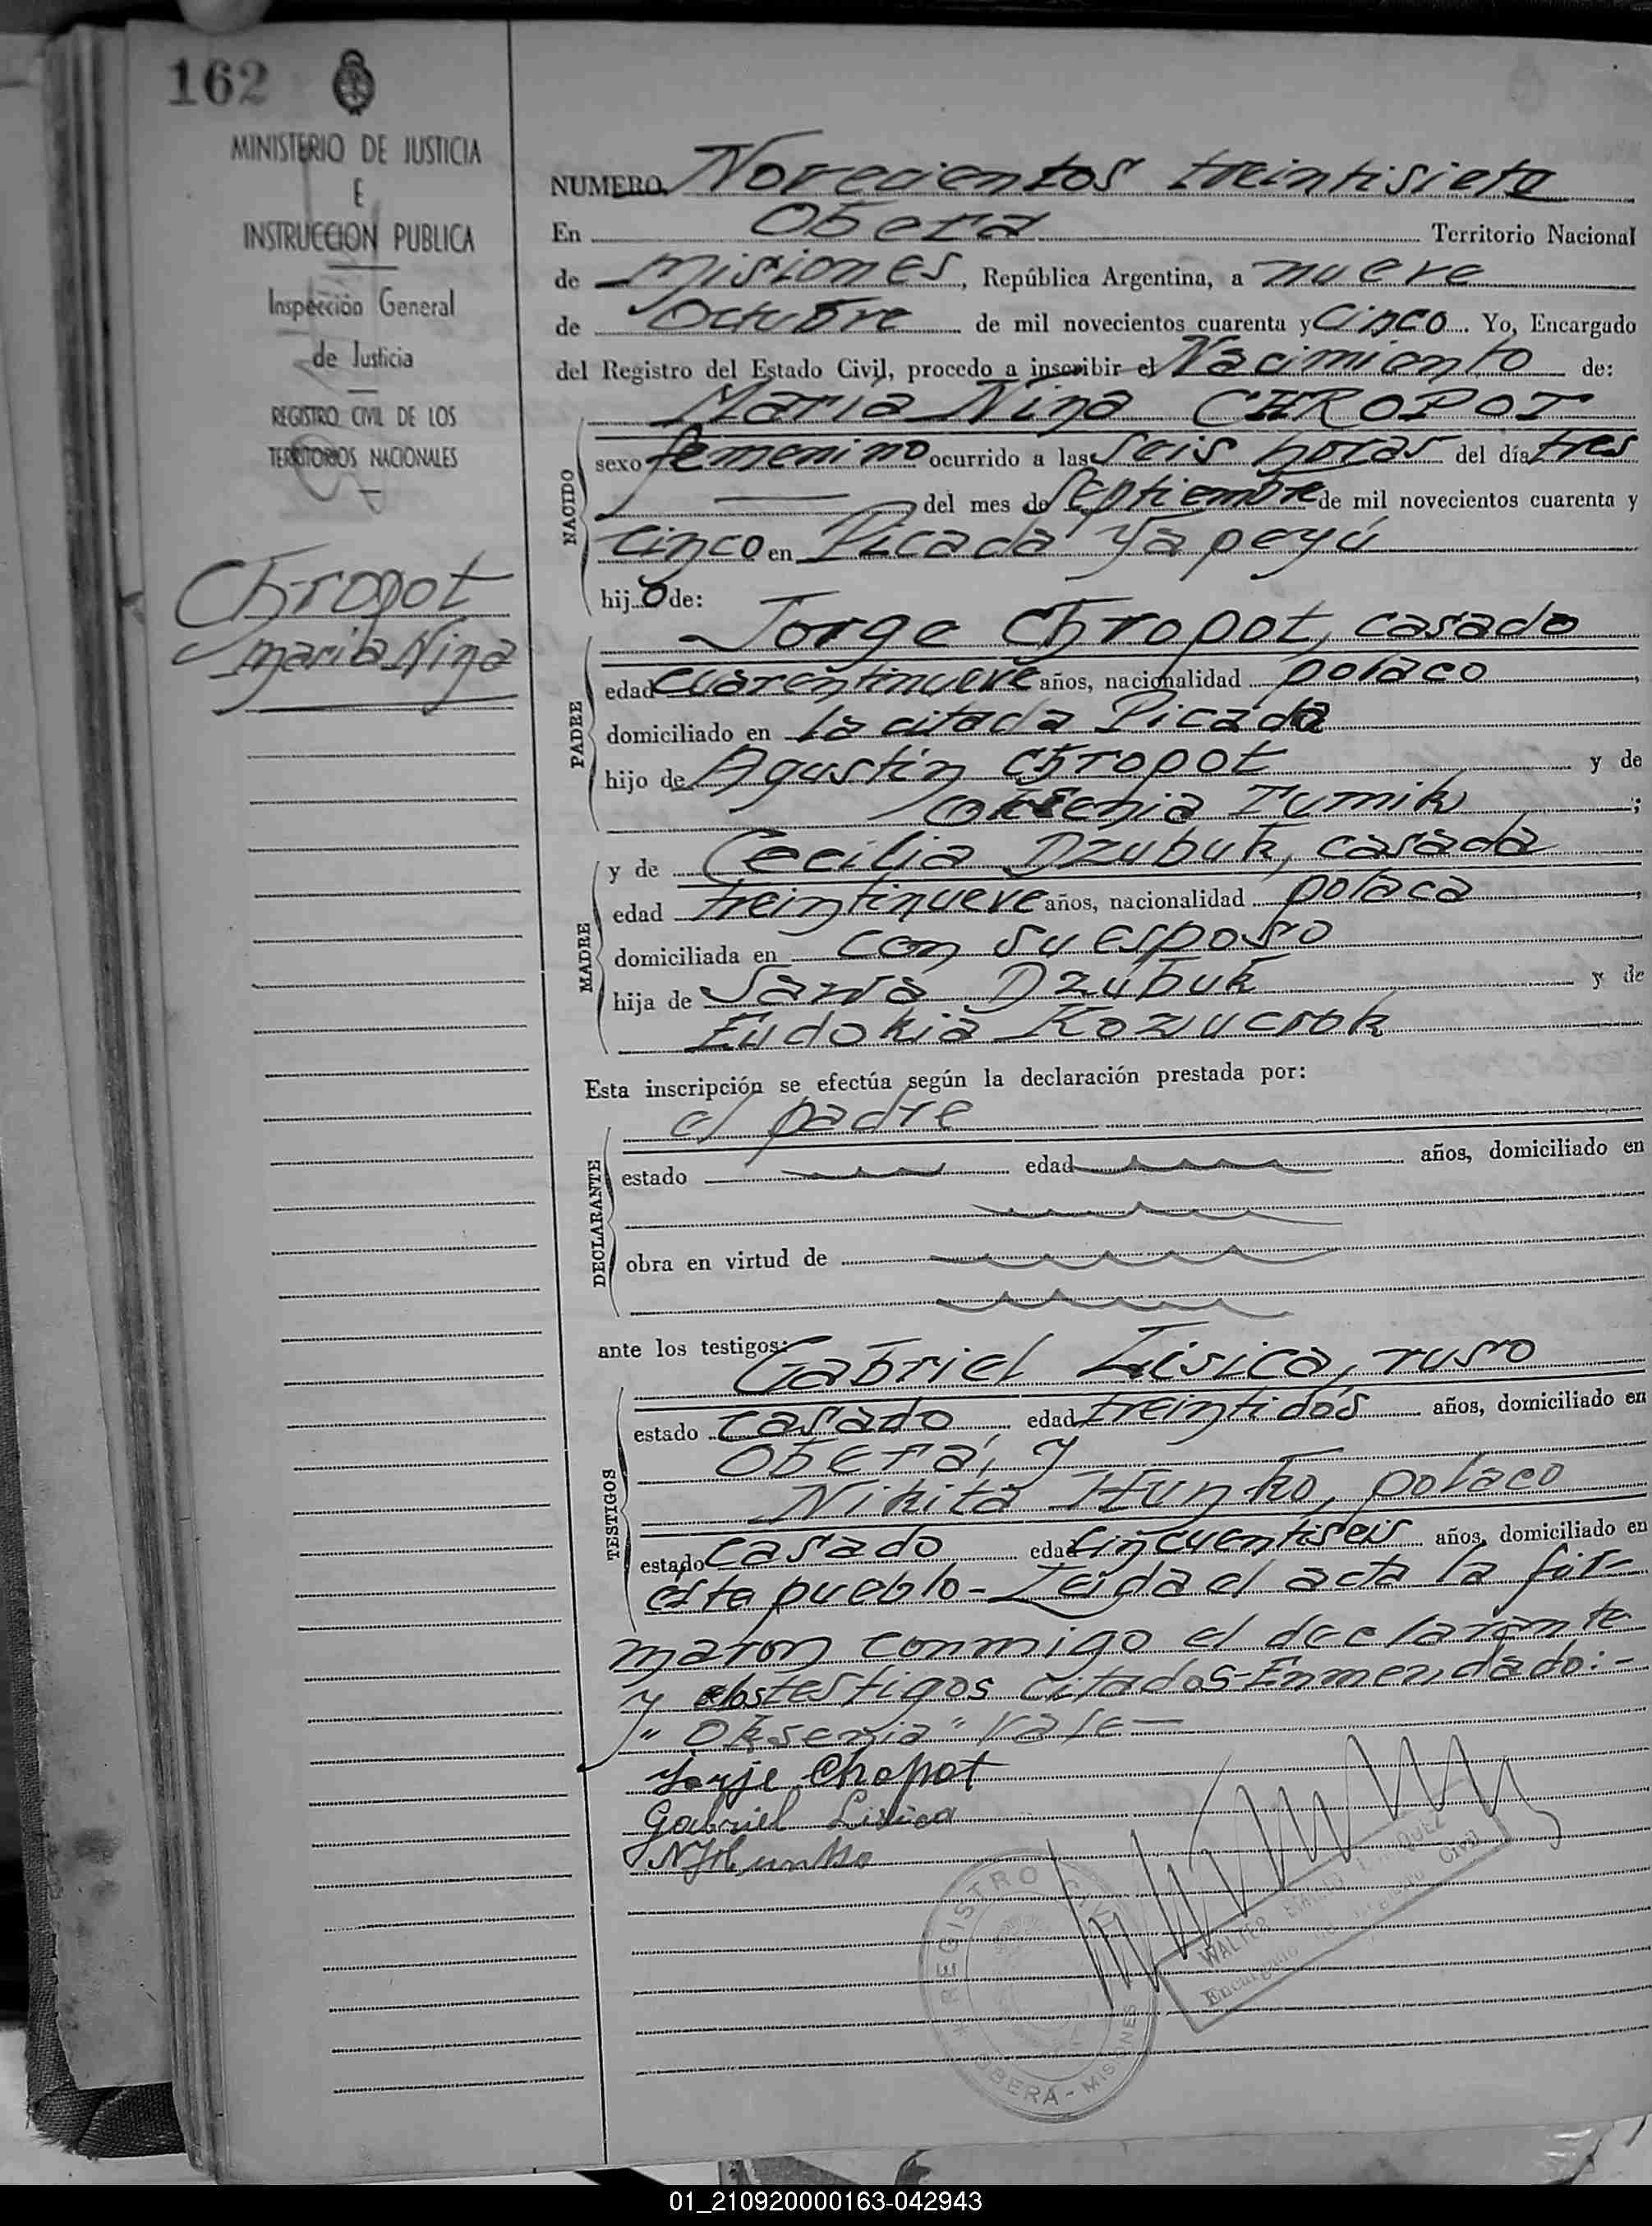 162
MINISTERIO DE JUSTICIA
E
INSTRUCCION PUBLICA
Inspección General
de Justicia
REGISTRO CIVIL DE LOS
TERRITORIOS NACIONALES
Chropot
Maria Nina
NUMERO Novecientos treintisiete
En Obera Territorio Nacional
de Misiones, República Argentina, a nueve
de Octubre de mil novecientos cuarenta y cinco. Yo, Encargado
del Registro del Estado Civil, procedo a inscribir el Nacimiento de:
Maria Nina CHROPOT
NACIDO
sexo femenino ocurrido a las seis horas del día tres
del mes de Septiembre de mil novecientos cuarenta y
cinco en Picada Yapeyú
hijo de:
Jorge Chropot, casado
PADRE
edad cuarentinueve años, nacionalidad polaco,
domiciliado en la citada Picada
hijo de Agustin Chropot y de
Oksenia Tumik;
MADRE
y de Cecilia Dzubuk, casada
edad treintinueve años, nacionalidad polaca,
domiciliada en con su esposo
hija de Sawa Dzubuk y de
Eudokia
Esta inscripción se efectúa según la declaración prestada por:
el padre
DECLARANTE
estado edad años, domiciliado en
obra en virtud de
ante los testigos:
Gabriel Lisica, ruso
TESTIGOS
estado casado, edad treintidós años, domiciliado en
Oberá, y
Nikita Hunko, polaco
estado casado edad cincuentiseis años, domiciliado en
este pueblo- Leida el acta la fir-
maron conmigo el declarante
y los testigos citados-Enmendado:-
"Oksenia" Vale-
Jorje Chopot
Gabriel Lisica
N Hunko
REGISTRO CIVIL
OBERA - MISIONES
WALTER
Encargado del Registro Civil
01_210920000163-042943